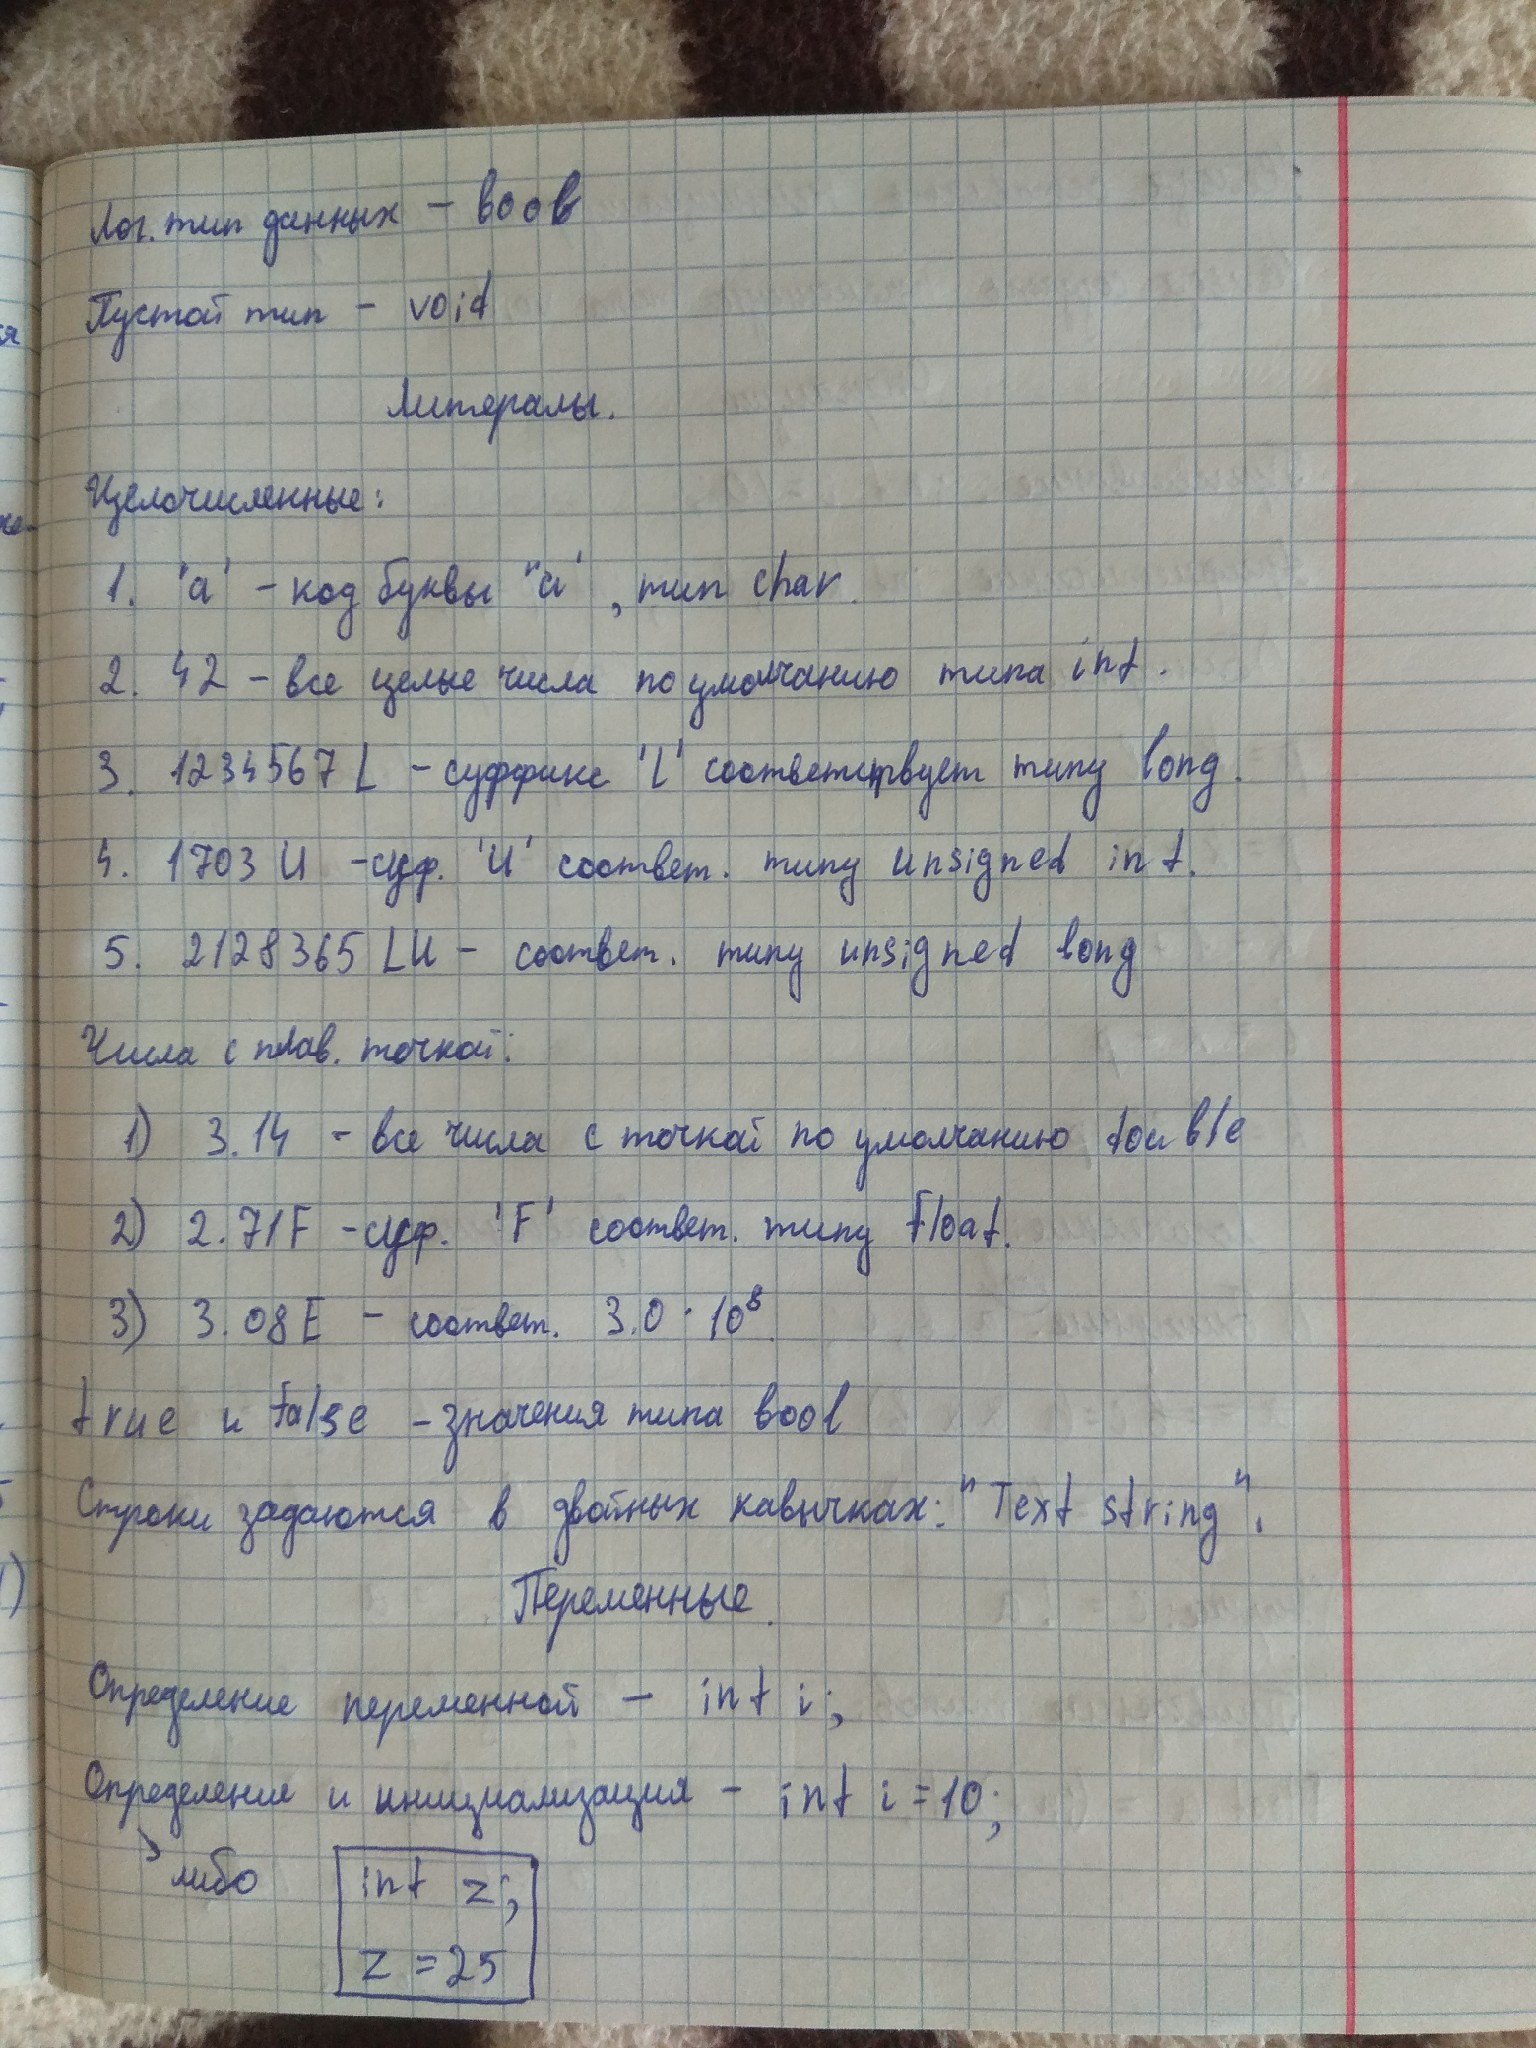 Лог. тип данных – boob
Пустой тип – void
Литералы.
Целочисленные:
1. 'a' – код буквы "a' , тип char.
2. 42 – все целые числа по умолчанию типа int.
3. 1234567 L – суффикс 'L' соответствует типу long.
4. 1703 U – суф. 'U' соответ. типу unsigned int.
5. 2128365 LU – соответ. типу unsigned long
Числа с плав. точкой:
1) 3.14 – все числа с точкой по умолчанию double
2) 2.71F – суф. 'F' соответ. типу Float.
3) 3.08E – соответ. 3.0 · 10⁸.
true и False – значения типа bool
Строки задаются в двойных кавычках: "Text string".
Переменные.
Определение переменной – int i;
Определение и инициализация – int i = 10;
либо int z;
z = 25